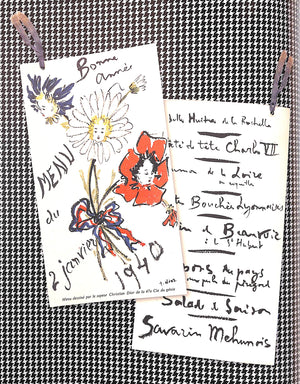 Bonne
année
MENU
du
2 janvier
1940
Menu dessiné par le sapeur Christian Dior de la 47e Cie du génie
Huitres de la Rochelle
tête Charles VII
de la Loire
Bouchées Lyonnaises
de Beauvoir
à la St Hubert
du pays
du périgord
Salade de Saison
Savarin Mehunois